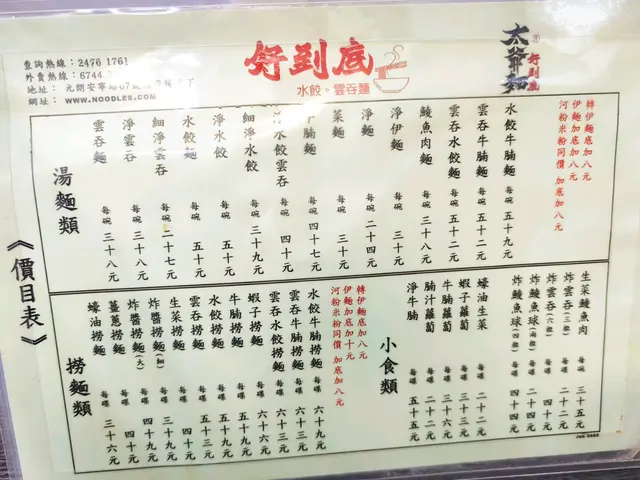 查詢熱線:2476 1761
外賣熱線:6744
地址:元朗安寧路67號
網址:WWW.NOODLES.COM
好到底
水餃。雲吞麵
太爺麵
好到底
《價目表》
湯麵類
轉伊麵底加八元
伊麵加底加八元
河粉米粉同價 加底加八元
水餃牛腩麵 每碗 五十九元
雲吞牛腩麵 每碗 五十二元
雲吞水餃麵 每碗 五十二元
鯪魚肉麵 每碗 三十八元
淨伊麵 每碗 三十元
淨麵 每碗 二十四元
菜麵 每碗 三十元
腩麵 每碗 四十七元
水餃雲吞 每碗 四十元
細淨水餃 每碗 三十九元
淨水餃 每碗 五十元
水餃麵 每碗 五十元
細淨雲吞 每碗 二十七元
淨雲吞 每碗 三十八元
雲吞麵 每碗 三十八元
小食類
生菜鯪魚肉 每碗 三十五元
炸雲吞(六粒) 每碟 四十元
炸雲吞(三粒) 每碟 二十元
炸鯪魚球(兩粒) 每碟 二十四元
炸鯪魚球(四粒) 每碟 四十四元
蠔油生菜 每碟 二十二元
蝦子蘿蔔 每碟
牛腩蘿蔔 每碟
腩汁蘿蔔 每碟 二十二元
淨牛腩 每碟 五十五元
撈麵類
轉伊麵底加八元
伊麵加底加十元
河粉米粉同價 加底加八元
水餃牛腩撈麵 每碟 六十九元
雲吞牛腩撈麵 每碟
雲吞水餃撈麵 每碟
蝦子撈麵 每碟
牛腩撈麵 每碟
水餃撈麵 每碟
雲吞撈麵 每碟
生菜撈麵 每碟
炸醬撈麵(細) 每碟
炸醬撈麵(大) 每碟
薑蔥撈麵 每碟
蠔油撈麵 每碟 三十六元